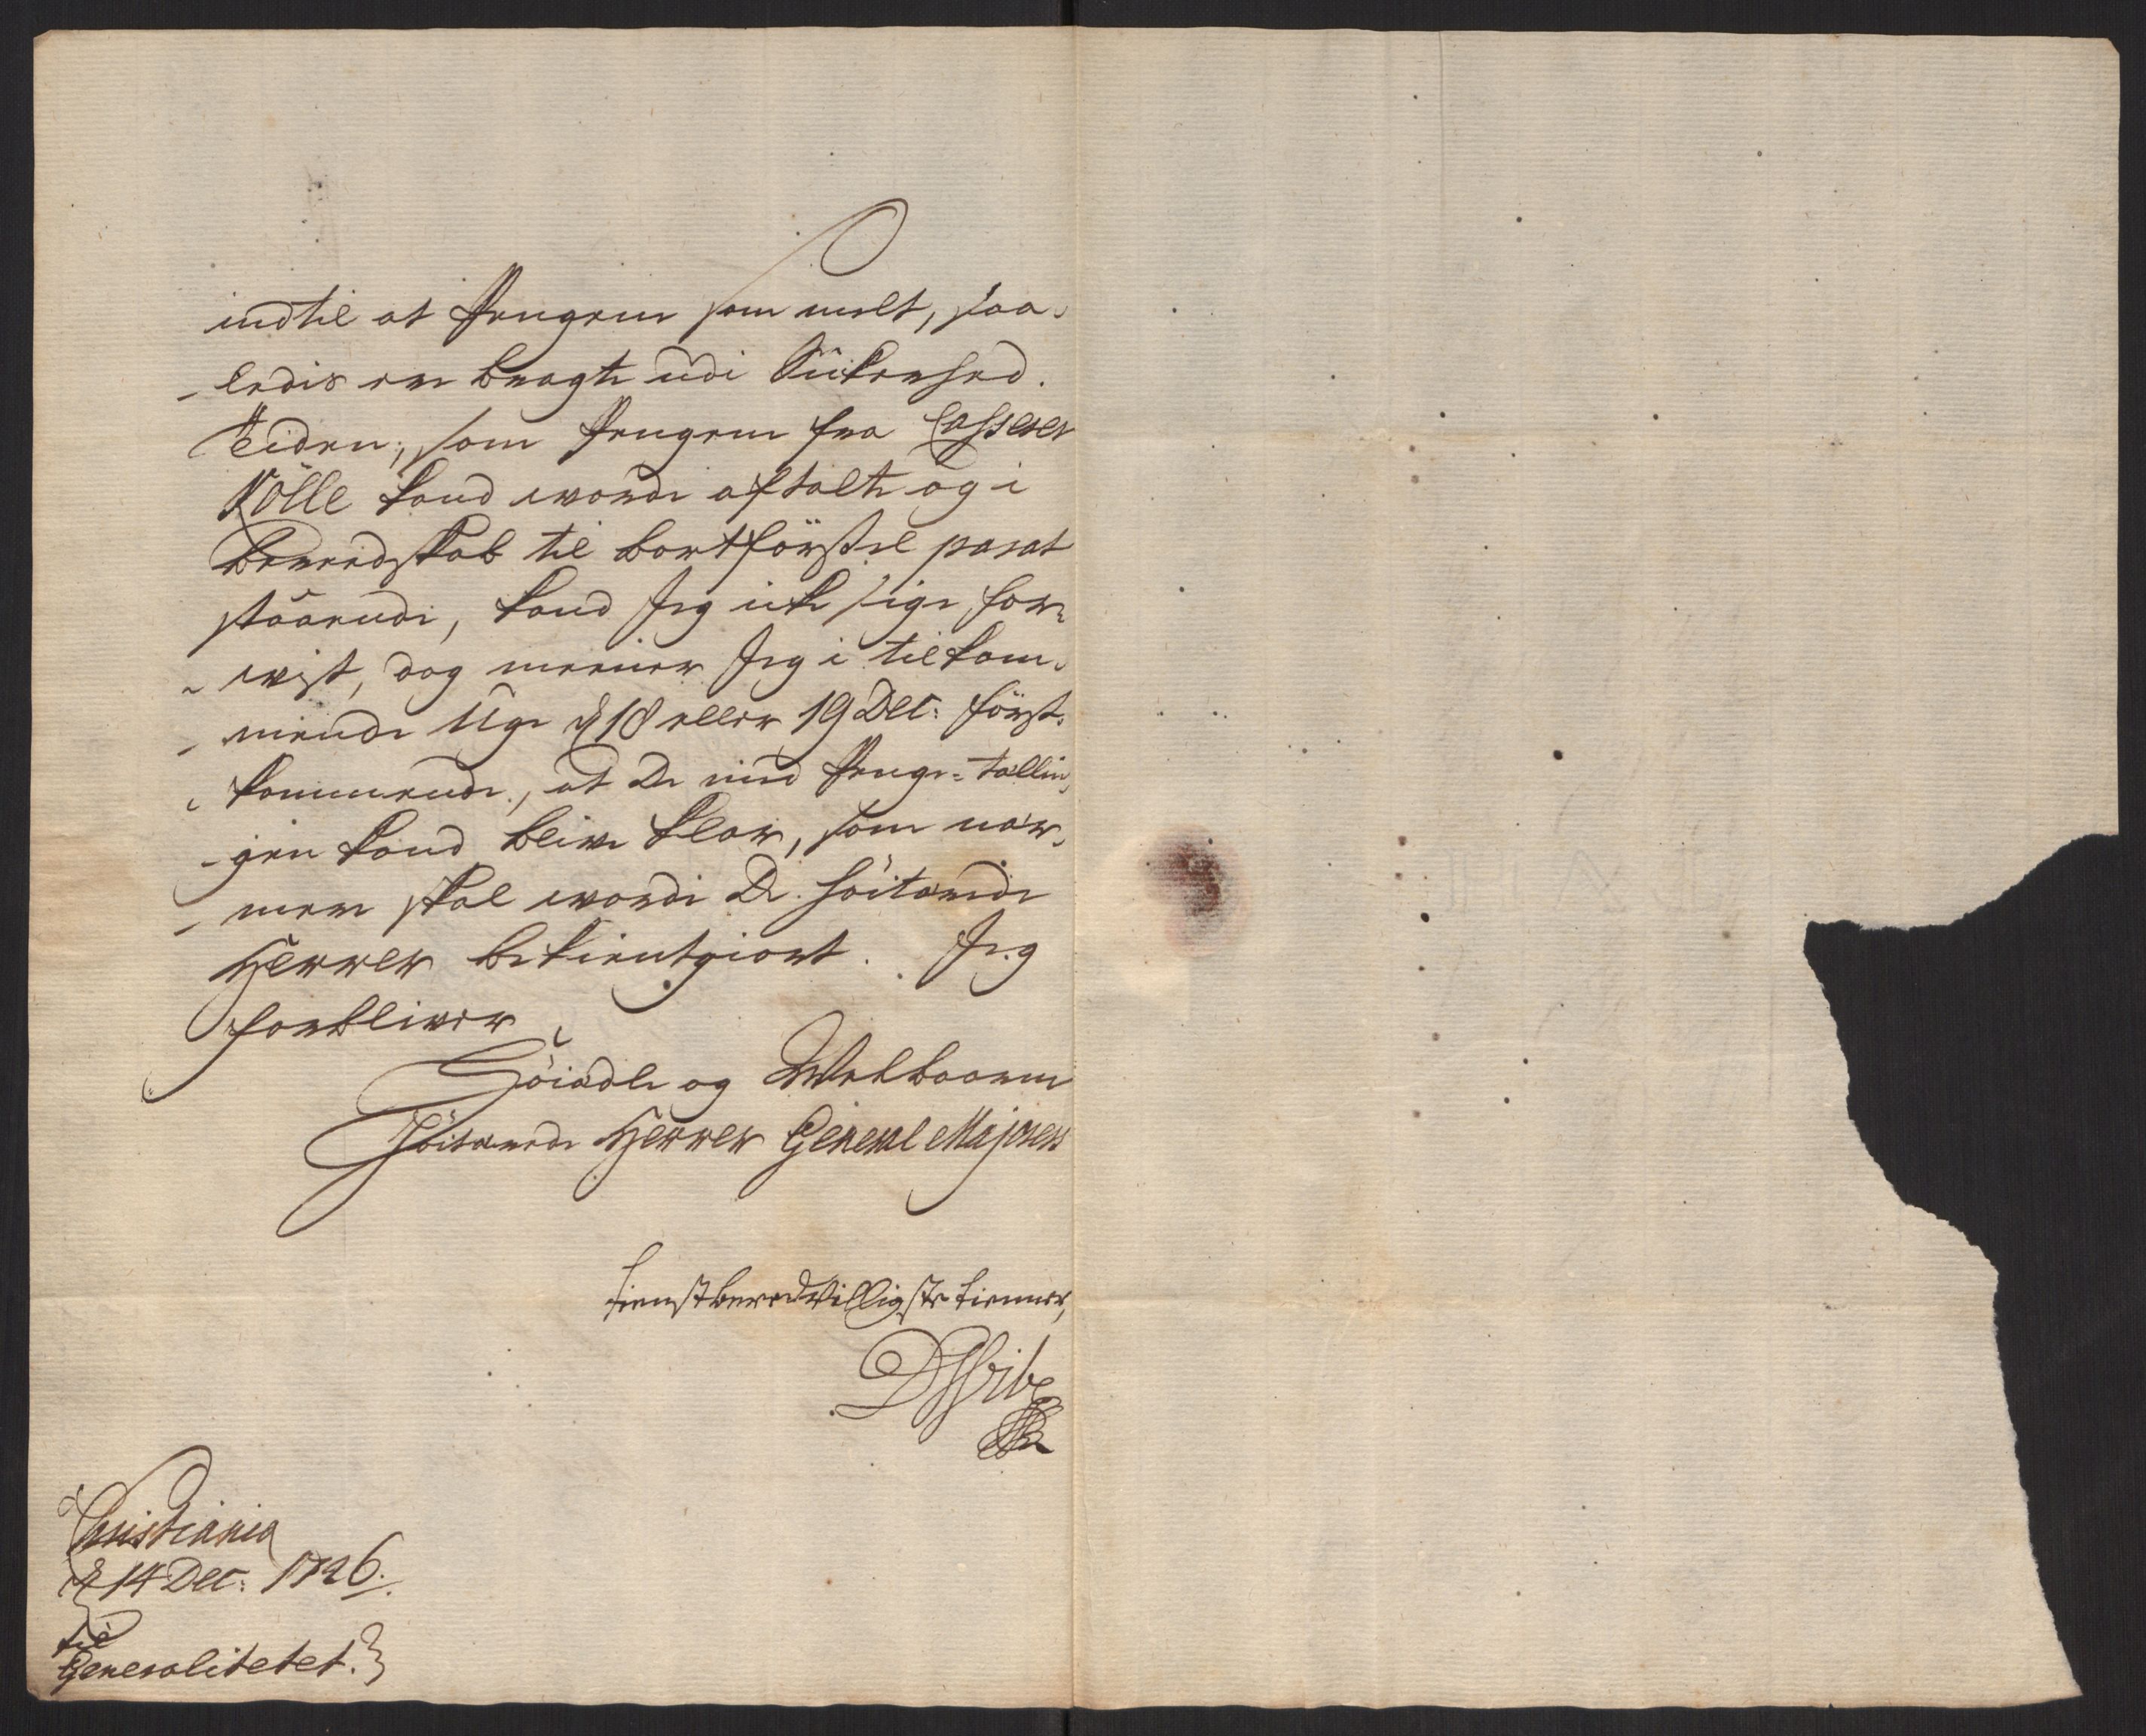 indtil at Pengene som melt, saa-
ledis er bragte udi Sikerhed.
Tiden, som Pengene fra Casserer
Nölle kand worde aftalte og i
Bereedskab til bortförsel parat
staaende, kand Jeg icke sige for
wist, dog meener Jeg i tilkom-
mende Uge d 18 eller 19 Dec: först-
kommende, at De med Penge-tællin-
gen kand blive klar, som nær-
mere skal worde De höitærede
Herrer bekientgiort. Jeg
forbliver
Höiædle og Welbaarne
Höitærede Herrer General Majorers
tienstberedvilligste tienner,
DWibe
Christiania
d 14 Dec: 1726.
til
Generalitetet.